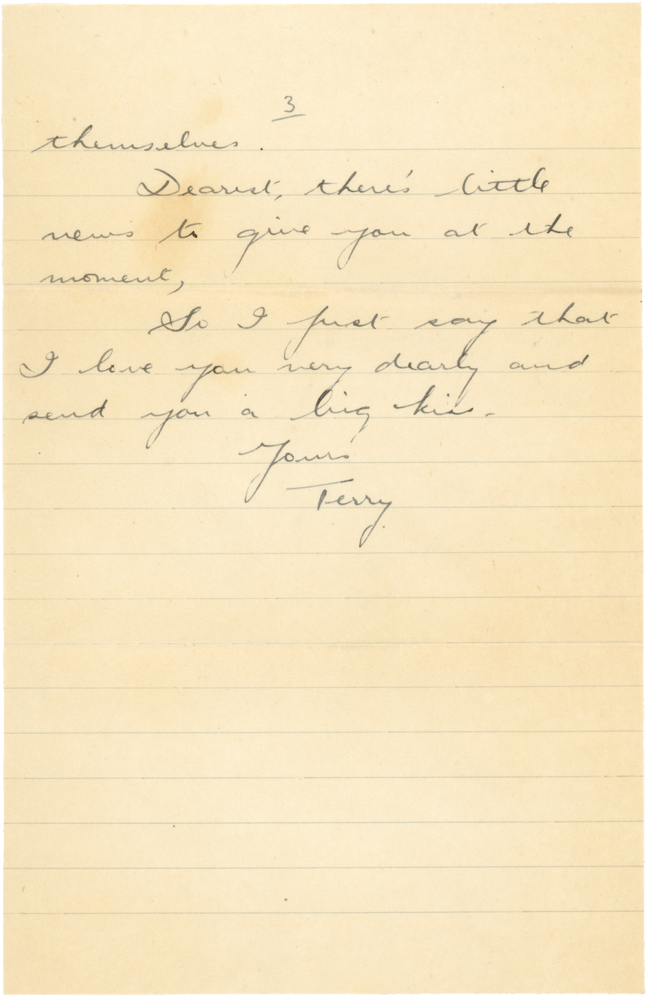 3
themselves.
Dearest, there's little
news to give you at the
moment,
So I just say that
I love you very dearly and
send you a big kiss.
Yours
Terry